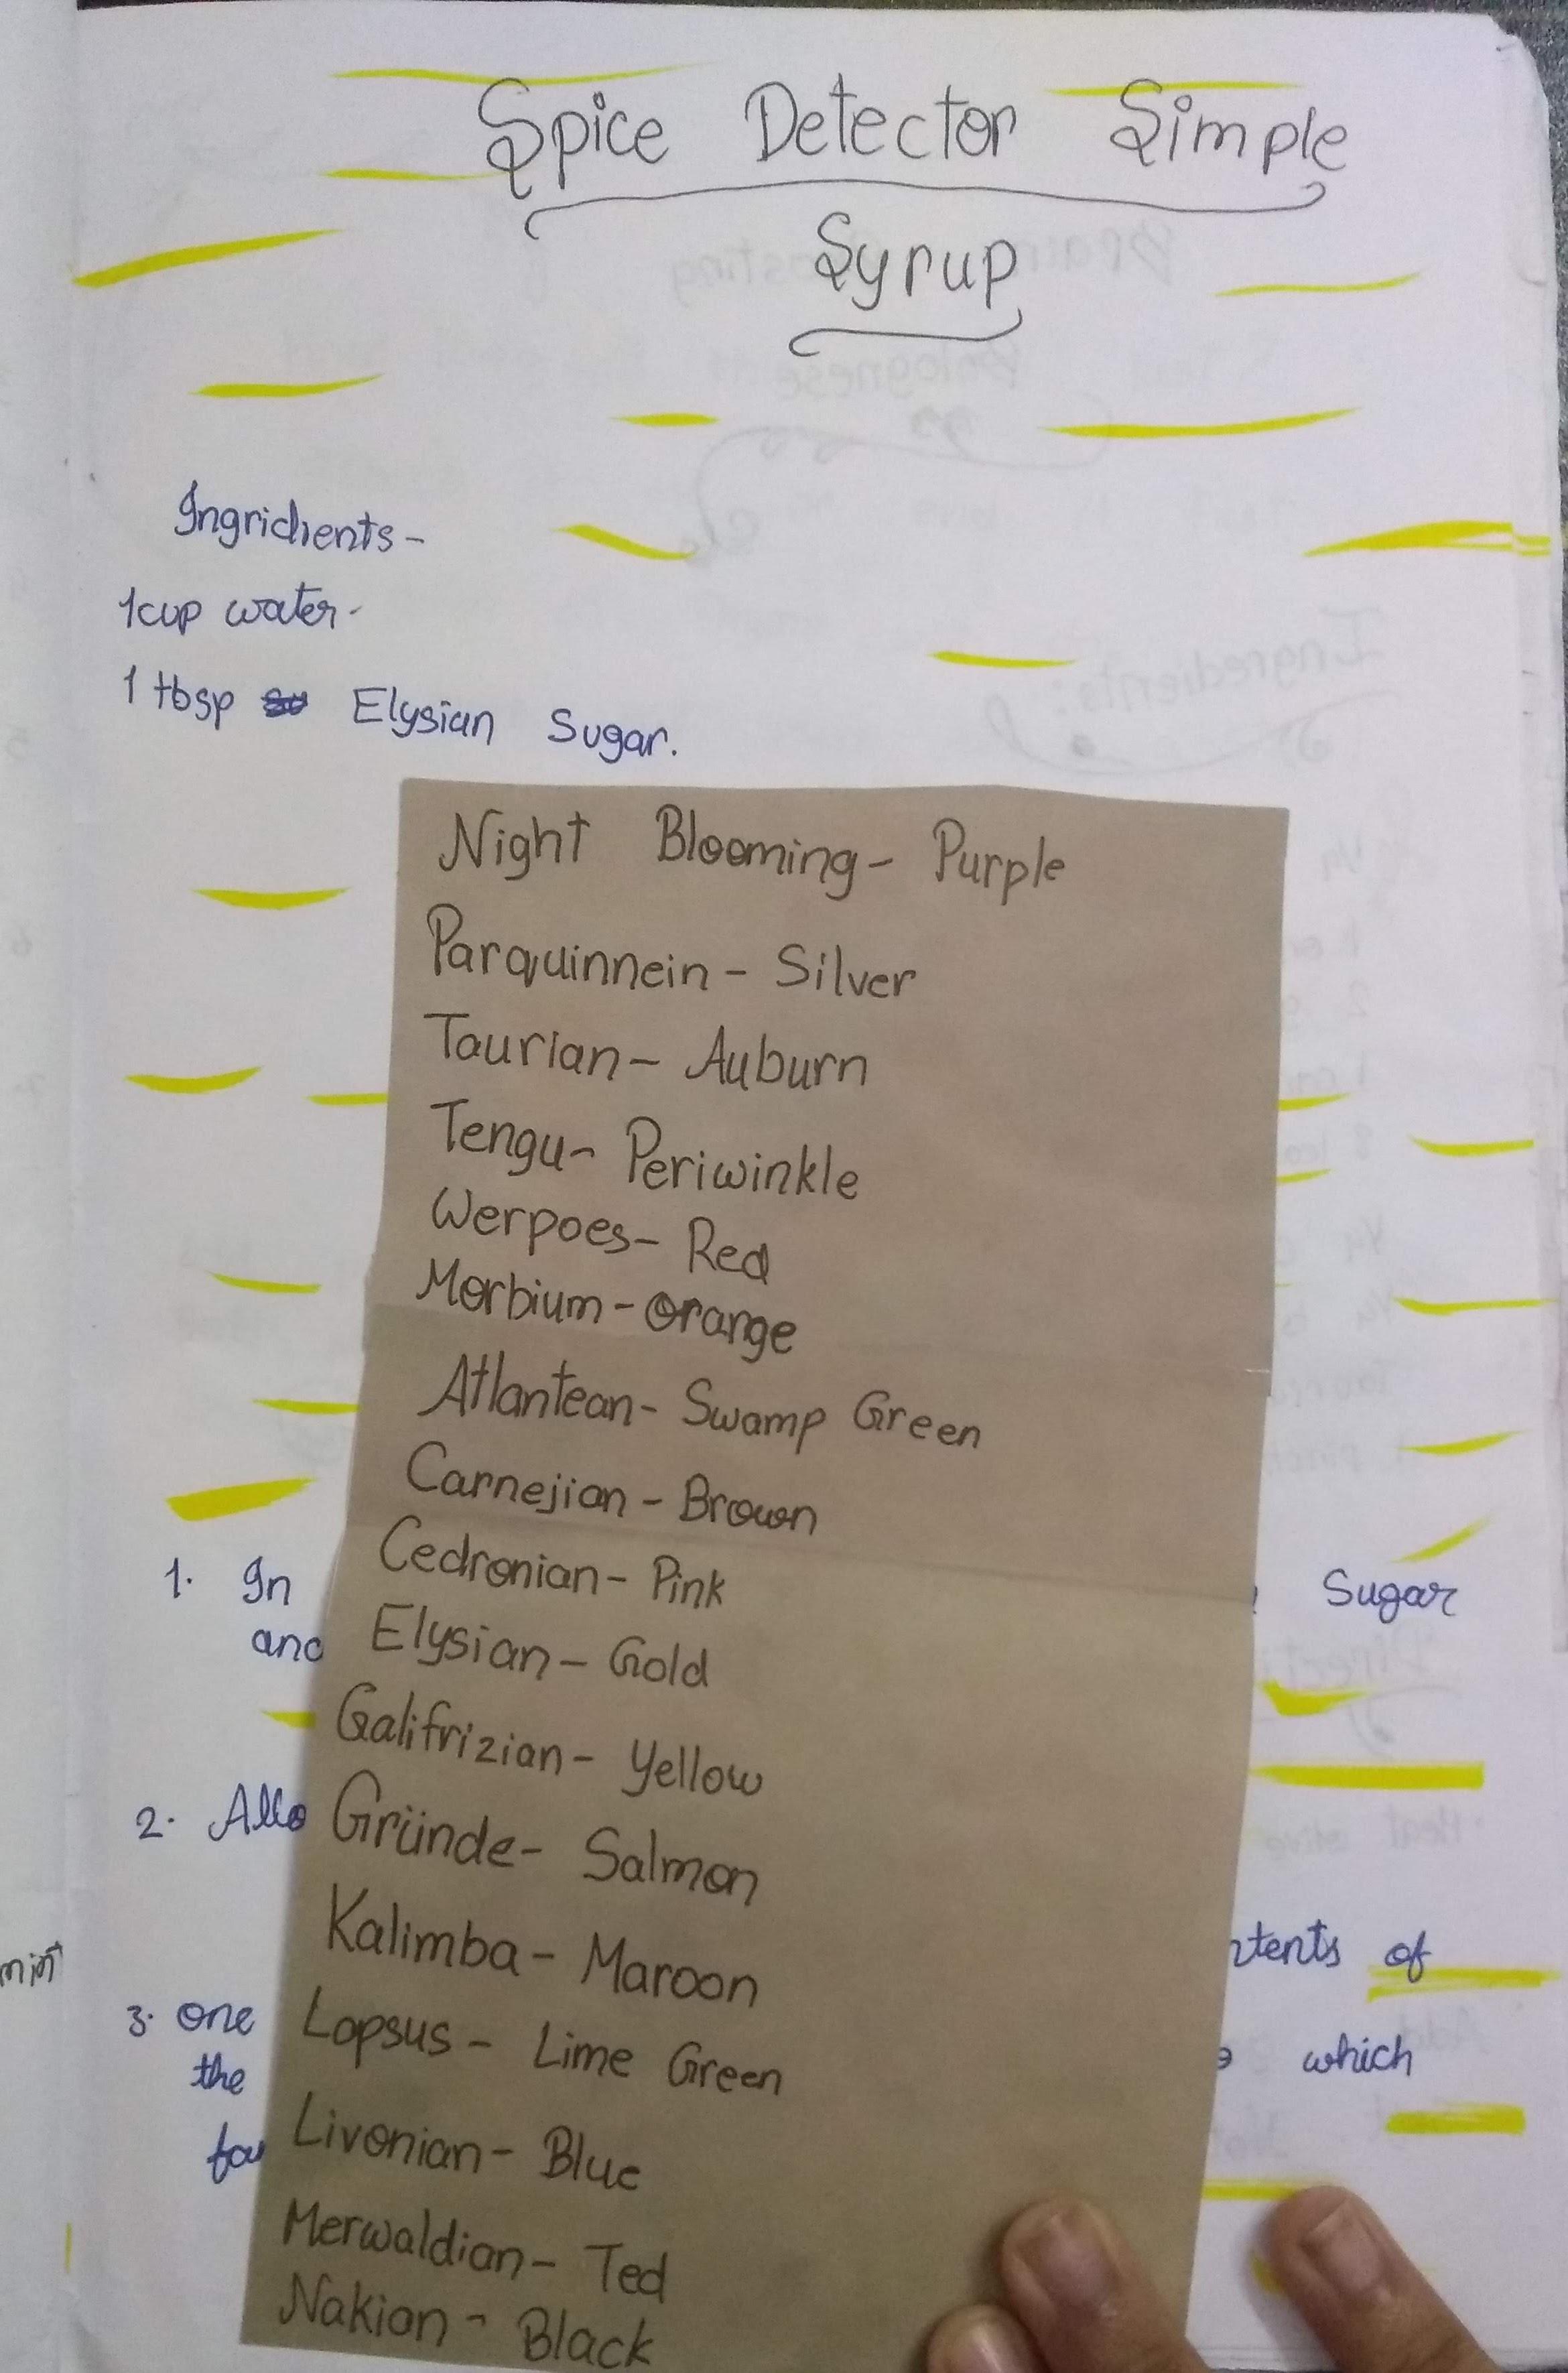 Spice Detector Simple
Syrup
Ingridients -
1cup water-
1 tbsp Elysian Sugar.
Night Blooming - Purple
Parquinnein - Silver
Taurian - Auburn
Tengu - Periwinkle
Werpoes - Red
Morbium - Orange
Atlantean - Swamp Green
Carnejian - Brown
Cedronian - Pink
Elysian - Gold
Galifrizian - Yellow
Gründe - Salmon
Kalimba - Maroon
Lopsus - Lime Green
Livonian - Blue
Merwaldian - Ted
Nakian - Black
1. In Sugar
2.
of
3. One which
the